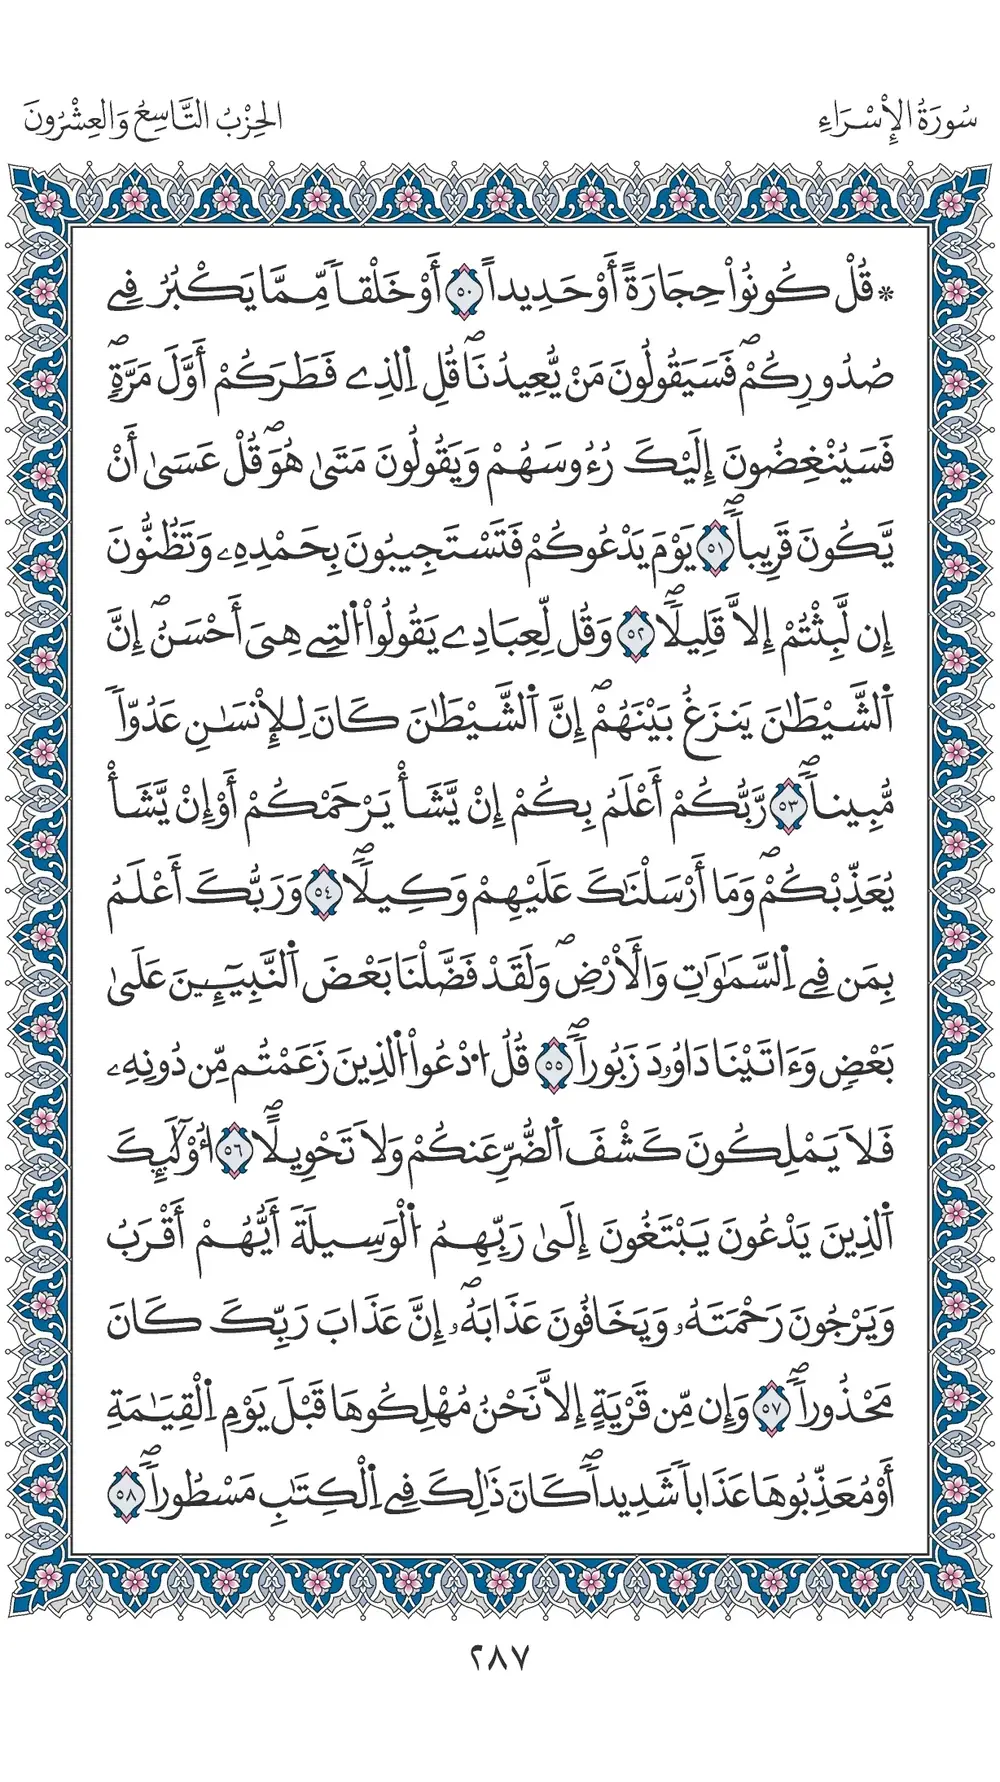 سُورَةُ الإِسْرَاءِ
الحِزْبُ التَّاسِعُ وَالعِشْرُونَ
* قُلْ كُونُواْ حِجَارَةً أَوْ حَدِيداً ٥٠ أَوْ خَلْقاً مِّمَّا يَكْبُرُ فِے
صُدُورِكُمْۖ فَسَيَقُولُونَ مَنْ يُّعِيدُنَاۖ قُلِ اِ۬لذِے فَطَرَكُمْ أَوَّلَ مَرَّةٖۖ
فَسَيُنْغِضُونَ إِلَيْكَ رُءُوسَهُمْ وَيَقُولُونَ مَتَىٰ هُوَۖ قُلْ عَسَىٰ أَنْ
يَّكُونَ قَرِيباًۖ ٥١ يَوْمَ يَدْعُوكُمْ فَتَسْتَجِيبُونَ بِحَمْدِهِۦ وَتَظُنُّونَ
إِن لَّبِثْتُمْ إِلاَّ قَلِيلاًۖ ٥٢ وَقُل لِّعِبَادِے يَقُولُواْ اُ۬لتِے هِيَ أَحْسَنُۖ إِنَّ
اَ۬لشَّيْطَٰنَ يَنزَغُ بَيْنَهُمْۖ إِنَّ اَ۬لشَّيْطَٰنَ كَانَ لِلإِنسَٰنِ عَدُوّاً
مُّبِيناًۖ ٥٣ رَّبُّكُمْ أَعْلَمُ بِكُمْ إِنْ يَّشَأْ يَرْحَمْكُمْ أَوْ إِنْ يَّشَأْ
يُعَذِّبْكُمْۖ وَمَا أَرْسَلْنَٰكَ عَلَيْهِمْ وَكِيلاًۖ ٥٤ وَرَبُّكَ أَعْلَمُ
بِمَن فِے اِ۬لسَّمَٰوَٰتِ وَالَارْضِۖ وَلَقَدْ فَضَّلْنَا بَعْضَ اَ۬لنَّبِيٓـِٕينَ عَلَىٰ
بَعْضٖ وَءَاتَيْنَا دَاوُۥدَ زَبُوراًۖ ٥٥ قُلُ اُ۟دْعُواْ اُ۬لذِينَ زَعَمْتُم مِّن دُونِهِۦ
فَلاَ يَمْلِكُونَ كَشْفَ اَ۬لضُّرِّ عَنكُمْ وَلاَ تَحْوِيلاًۖ ٥٦ اُوْلَٰٓئِكَ
اَ۬لذِينَ يَدْعُونَ يَبْتَغُونَ إِلَىٰ رَبِّهِمُ اُ۬لْوَسِيلَةَ أَيُّهُمْ أَقْرَبُ
وَيَرْجُونَ رَحْمَتَهُۥ وَيَخَافُونَ عَذَابَهُۥۖ إِنَّ عَذَابَ رَبِّكَ كَانَ
مَحْذُوراًۖ ٥٧ وَإِن مِّن قَرْيَةٍ إِلاَّ نَحْنُ مُهْلِكُوهَا قَبْلَ يَوْمِ اِ۬لْقِيَٰمَةِ
أَوْ مُعَذِّبُوهَا عَذَاباً شَدِيداًۖ كَانَ ذَٰلِكَ فِے اِ۬لْكِتَٰبِ مَسْطُوراًۖ ٥٨
٢٨٧